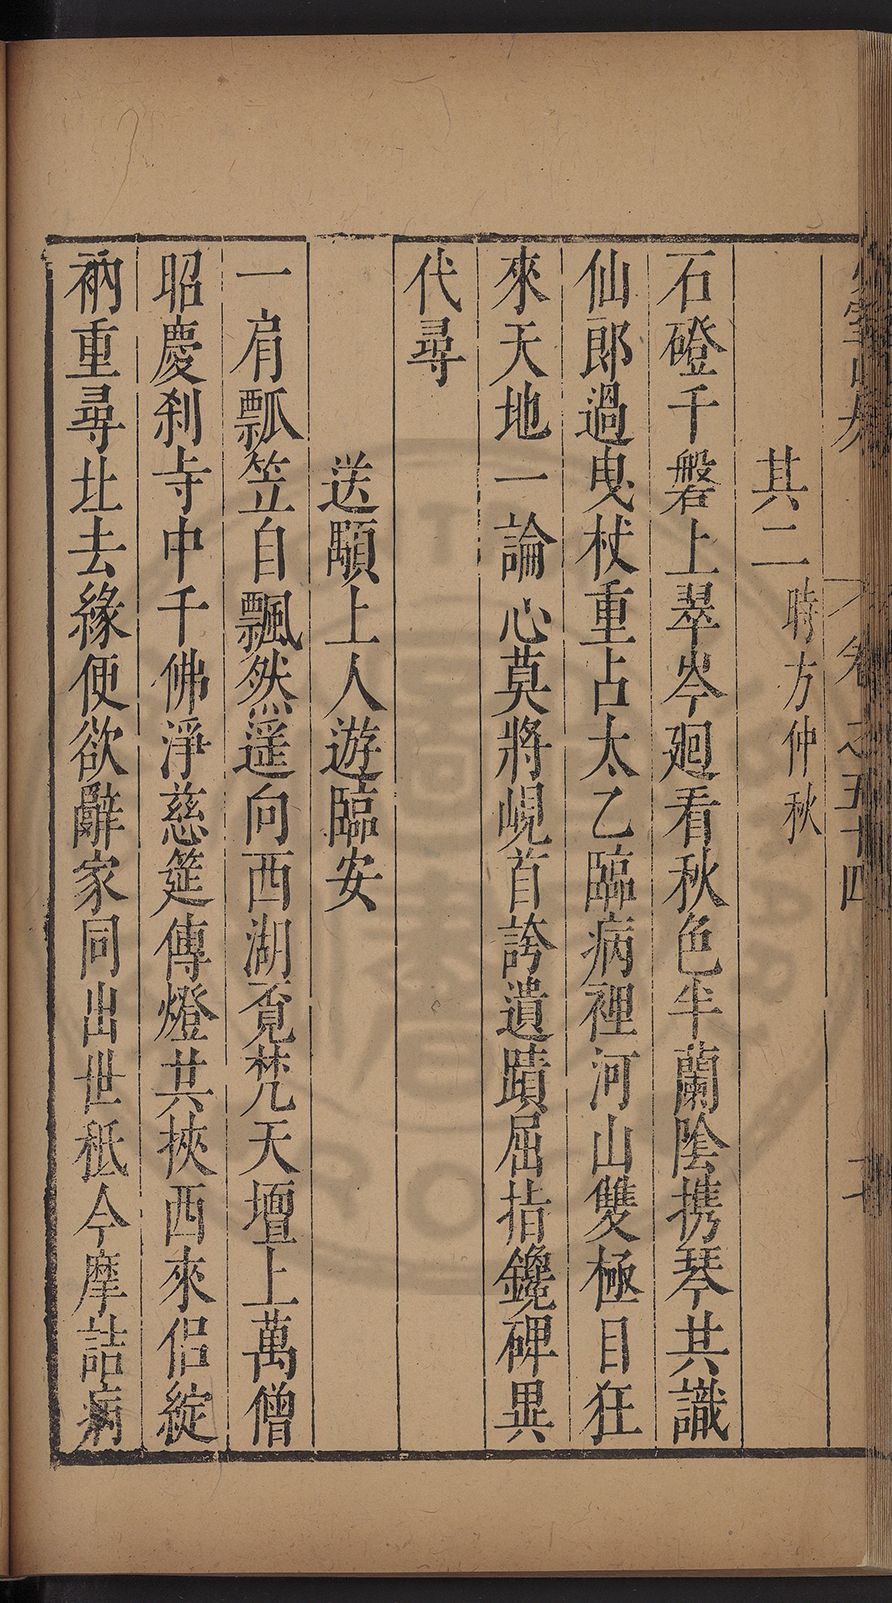 卷之五十四
其二時方仲秋
石磴千盤上翠岑廻看秋色半蘭陰携琴共識
仙郎過曳杖重占太乙臨病裡河山雙極目狂
來天地一論心莫將峴首誇遺蹟屈指鑱碑異
代尋
送顒上人遊臨安
一肩瓢笠自飄然遥向西湖覔梵天壇上萬僧
昭慶刹寺中千佛淨慈筵傳燈共挾西來侣綻
衲重尋北去緣便欲辭家同出世秪今摩詰病